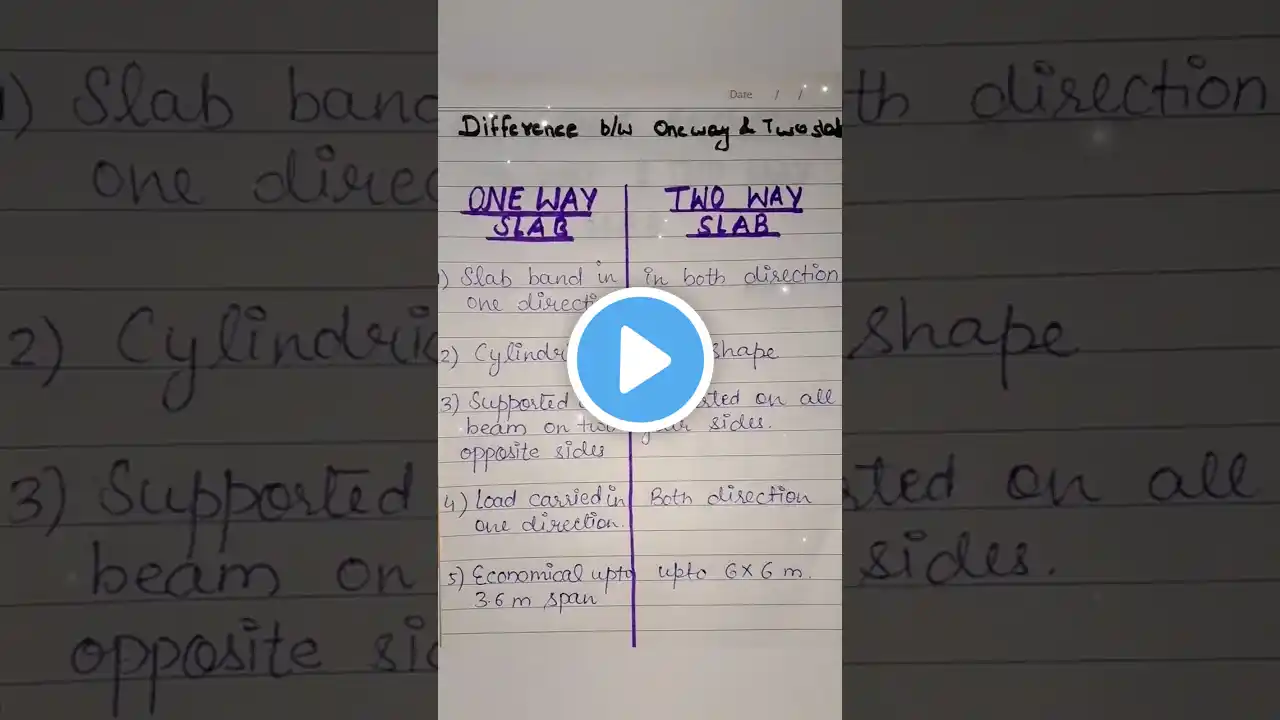 Date / /
Difference b/w One way & Two slab
ONE WAY SLAB
TWO WAY SLAB
1) Slab band in one direction
in both direction
2) Cylindric
shape
3) Supported
beam on two
opposite sides
sted on all
sides.
4) Load carried in
one direction.
Both direction
5) Economical upto
3.6 m span
upto 6x6 m.